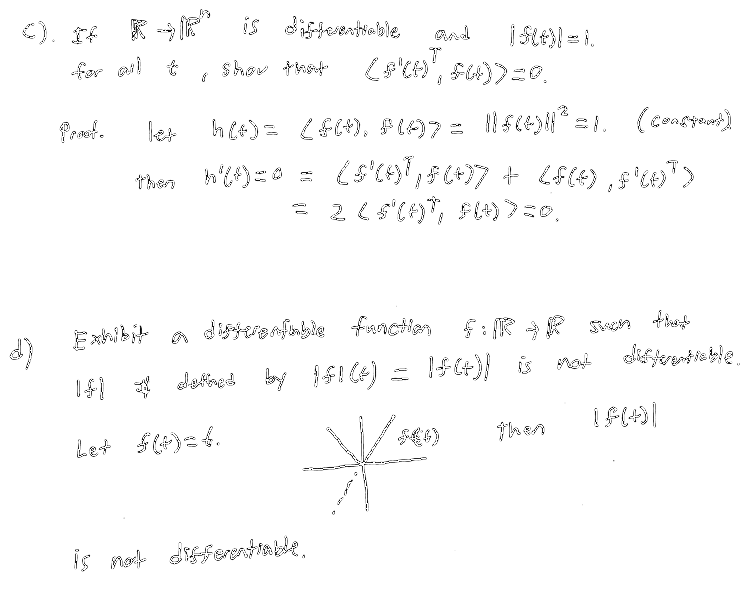 c). If ℝ → ℝⁿ is differentiable and |f(t)| = 1.
for all t, show that ⟨f'(t)ᵀ, f(t)⟩ = 0.
Proof. let h(t) = ⟨f(t), f(t)⟩ = ||f(t)||² = 1. (constant)
then h'(t) = 0 = ⟨f'(t)ᵀ, f(t)⟩ + ⟨f(t), f'(t)ᵀ⟩
= 2⟨f'(t)ᵀ, f(t)⟩ = 0.
d) Exhibit a differentiable function f: ℝ → ℝ such that
|f| if defined by |f|(t) = |f(t)| is not differentiable.
Let f(t) = t. f(t) then |f(t)|
is not differentiable.